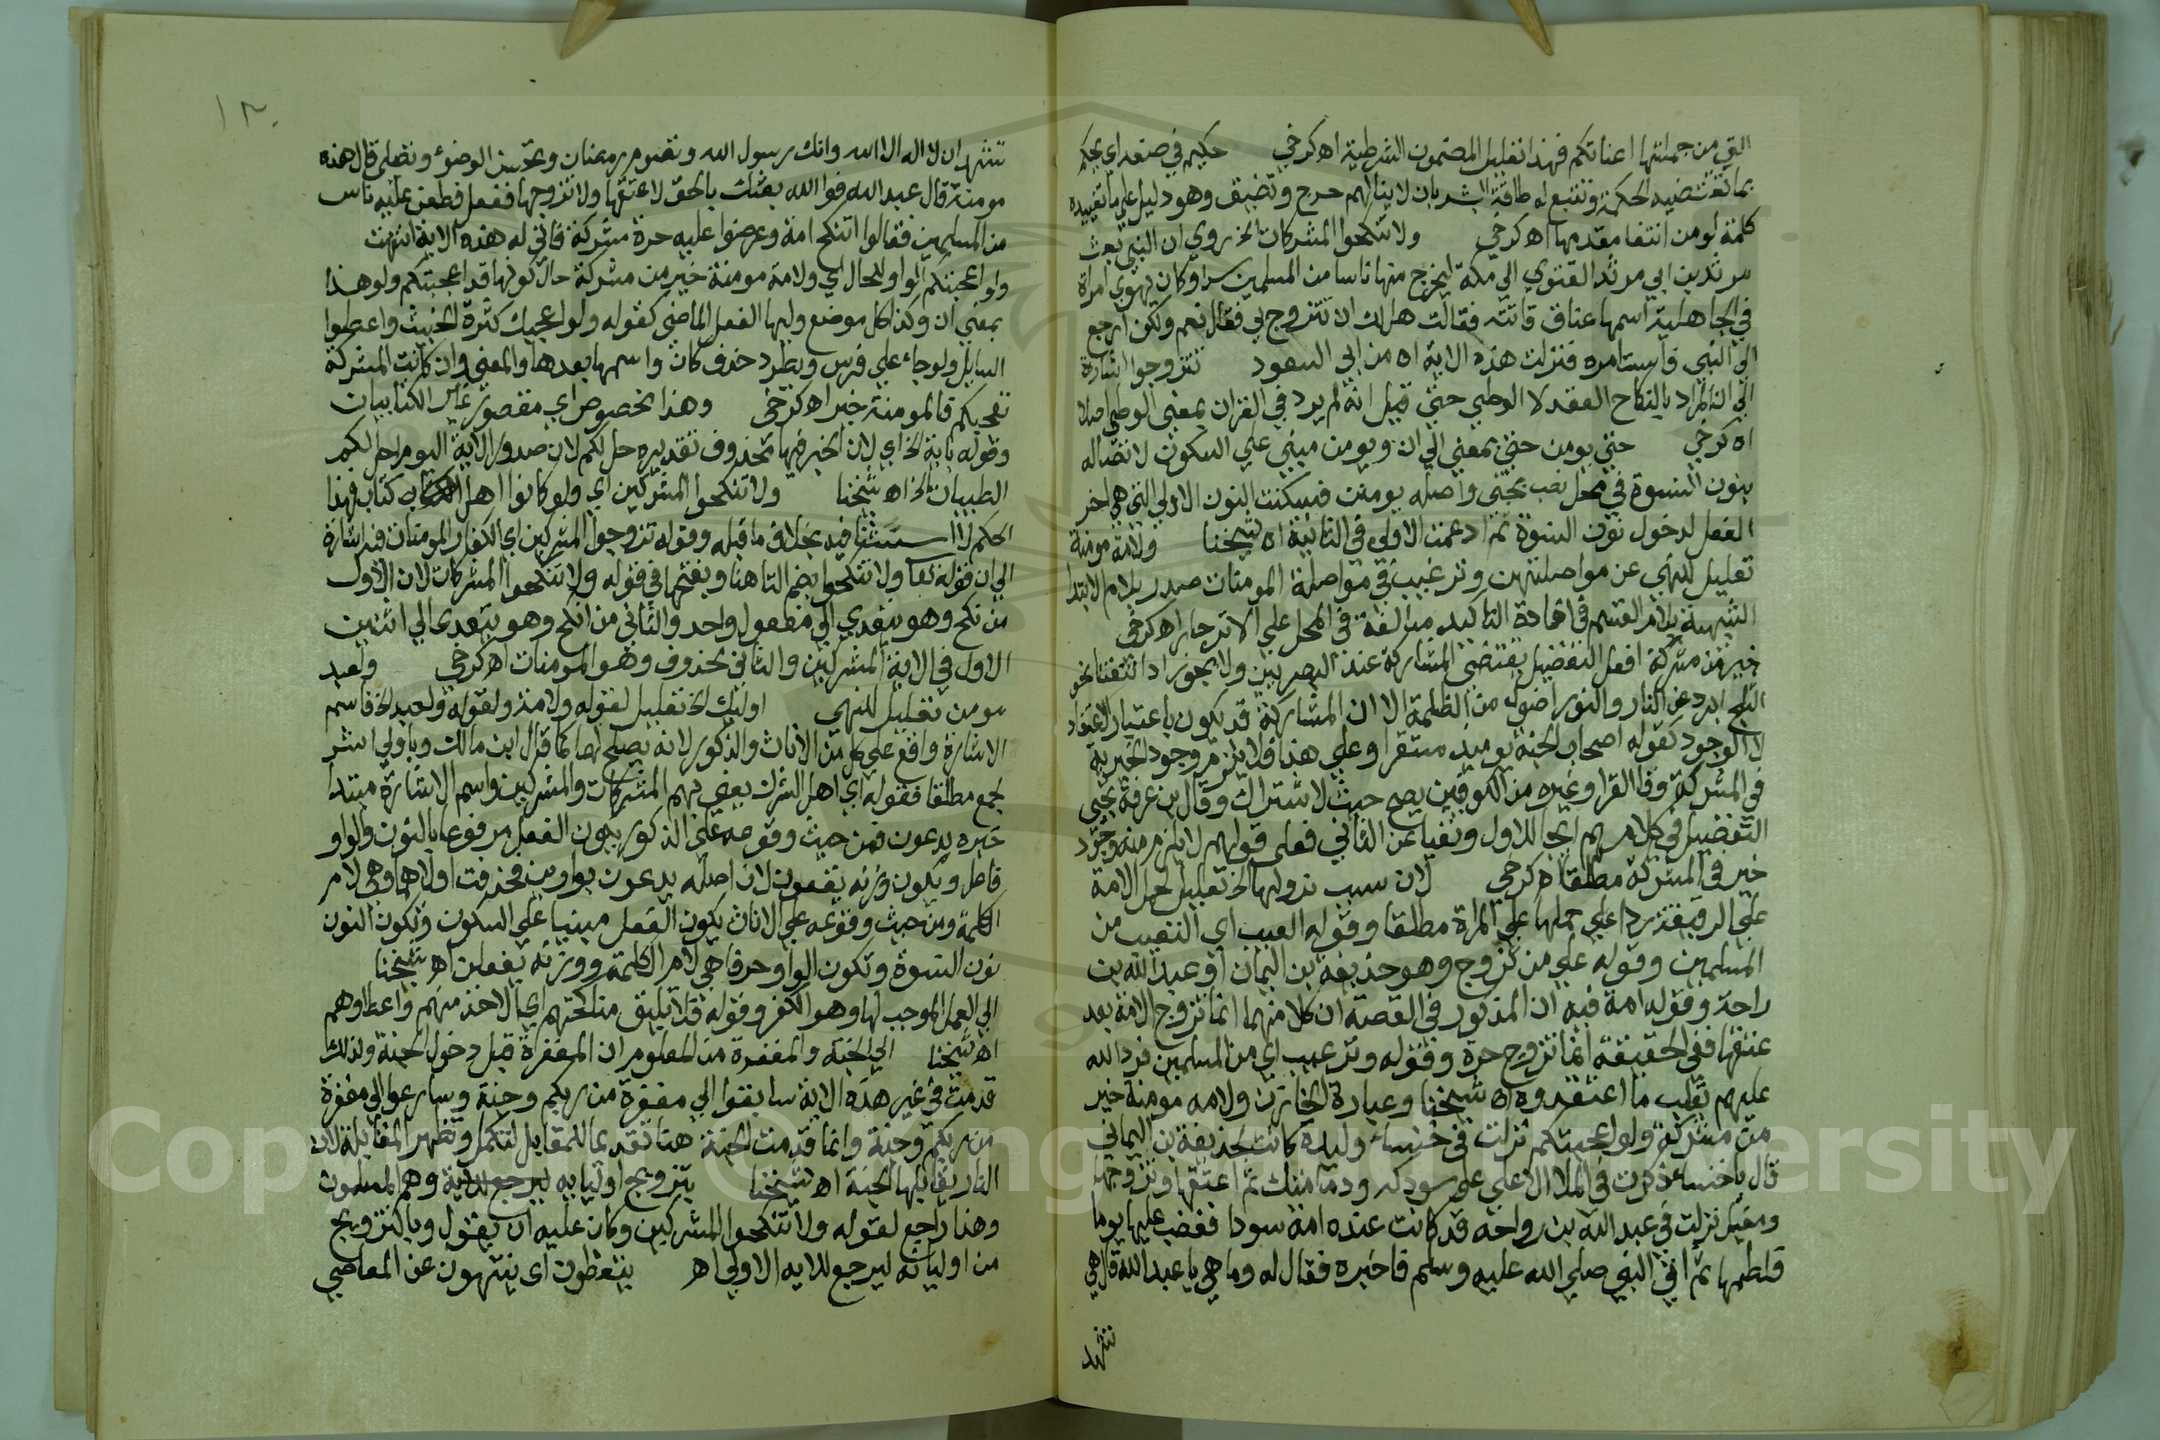 التي من جملتها اعناتكم فهذا تعليل لمضمون الشرطية اه كرخي حكيم في صنعه اي يحكم
بما تقتضيه الحكمة وتتسع له طاقة البشر بان لا ينالهم حرج وتضييق وهو دليل على ما تفيده
كلمة لو من انتفا مقدمها اه كرخي ولا تنكحوا المشركات الخ روي ان النبي بعث
مرثد بن ابي مرثد الغنوي الي مكة ليخرج منها ناسا من المسلمين سرا وكان يهوي امراة
في الجاهلية اسمها عناق فاتته فقالت هل لك ان تتزوج بي فقال نعم ولكن ارجع
الي النبي فاستامره فنزلت هذه الاية اه من ابي السعود تتزوجوا اشارة
الي ان المراد بالنكاح العقد لا الوطي حتي قيل انه لم يرد في القران بمعني الوطي اصلا
اه كرخي حتي يومن حتي بمعني الي ان ويومن مبني علي السكون لاتصاله
بنون النسوة في محل نصب بحتي واصله يومنن فسكنت النون الاولي التي هي اخر
الفعل لدخول نون النسوة ثم ادغمت الاولي في الثانية اه شيخنا ولامة مومنة
تعليل للنهي عن مواصلتهن وترغيب في مواصلة المومنات صدر بلام الابتدا
الشبيهة بلام القسم في افادة التاكيد مبالغة في الحمل علي الانزجار اه كرخي
خير من مشركة افعل التفضيل يقتضي المشاركة عند البصريين ولا يجوز اذا انتفتا نحو
الثلج ابرد من النار والنور اضوا من الظلمة الا ان المشاركة قد يكون باعتبار الاعتقاد
لا الوجود كقوله اصحاب الجنة يوميذ خير مستقرا وعلي هذا فلا يلزم وجود الخيرية
في المشركة وقال الفرا وغيره من الكوفيين يصح حيث لا اشتراك وقال بن عرفة يجي
التفضيل في كلامهم ايجابا للاول ونفيا عن الثاني فعلي قولهم لا يلزم منه وجود
خير في المشركة مطلقا اه كرخي لان سبب نزولها الخ تعليل لحمل الامة
علي الرقيقة ردا علي حملها علي المراة مطلقا وقوله العيب اي التعييب من
المسلمين وقوله علي من تزوج وهو حذيفة بن اليمان او عبد الله بن
راحة وقوله امة فيه ان المذكور في القصة ان كلا منهما انما تزوج الامة بعد
عتقها ففي الحقيقة انما تزوج حرة وقوله وترغيب اي من المسلمين فرد الله
عليهم بقلب ما اعتقدوه اه شيخنا وعبارة الخازن ولامة مومنة خير
من مشركة ولو اعجبتكم نزلت في خنساء وليدة كانت لحذيفة بن اليماني
قال يا خنساء ذكرت في الملا الاعلي علي سودكه ودمامتك ثم اعتقها وتزوجها
وقيل نزلت في عبد الله بن رواحة قد كانت عنده امة سودا فغضب عليها يوما
فلطمها ثم اتي النبي صلي الله عليه وسلم فاخبره فقال له وما هي يا عبد الله قال هي
تشهد
١٢٠
تشهد ان لا اله الا الله وانك رسول الله وتصوم رمضان وتحسن الوضوء وتصلي قال هذه
مومنة قال عبد الله فوا الله بعثك بالحق لاعتقها ولاتزوجها ففعل فطعن عليه ناس
من المسلمين فقالوا اتنكح امة وعرضوا عليه حرة مشركة فاتي له هذه الاية انتهت
ولو اعجبتكم الواو للحال اي ولامة مومنة خير من مشركة حال كونها قد اعجبتكم ولو هذا
بمعني ان وكذا كل موضع وليها الفعل الماضي كقوله ولو اعجبك كثرة الخبيث واعطوا
السايل ولو جاء علي فرس ويطرد حذف كان واسمها بعدها والمعني وان كانت المشركة
تعجبكم فالمومنة خير اه كرخي وهذا مخصوص اي مقصور علي غير الكتابيات
وقوله باية الخ اي لان الخبر فيها محذوف تقديره حل لكم لان صدور الاية اليوم احل لكم
الطيبات الخ اه شيخنا ولا تنكحوا المشركين اي ولو كانوا اهل كتاب فهذا
الحكم لا استثنا فيه بخلاف ما قبله وقوله تزوجوا المشركين اي الكفار المومنات فيه اشارة
الي ان قوله تعا ولا تنكحوا بضم التا هنا وبفتحها في قوله ولا تنكحوا المشركات لان الاول
من نكح وهو يتعدي الي مفعول واحد والثاني من انكح وهو يتعدى الي اثنين
الاول في الاية المشركين والثاني محذوف وهو المومنات اه كرخي ولعبد
مومن تعليل للنهي اوليك الخ تعليل لقوله ولامة ولقوله ولعبد الخ فاسم
الاشارة واقع علي كل من الاناث والذكور لانه يصلح لهما كما قال ابن مالك وباولي اشر
لجمع مطلقا فقوله اي اهل الشرك يعني بهم المشركات والمشركين واسم الاشارة مبتدا
خبره يدعون فمن حيث وقوعه علي الذكور يكون الفعل مرفوعا بالنون والواو
فاعل ويكون وزنه يفعون لان اصله يدعوون بواوين فحذفت اولاهما وهي لام
الكلمة ومن حيث وقوعه علي الاناث يكون الفعل مبنيا علي السكون وتكون النون
نون النسوة وتكون الواو حرفا هي لام الكلمة ووزنه يفعلن اه شيخنا
الي العمل الموجب لها وهو الكفر وقوله فلا يليق مناكحتهم اي الاخذ منهم واعطاوهم
اه شيخنا الي الجنة والمغفرة من المعلوم ان المغفرة قبل دخول الجنة ولذلك
قدمت في غير هذه الاية سابقوا الي مغفرة من ربكم وجنة وسارعوا الي مغفرة
من ربكم وجنة وانما قدمت الجنة هنا تقديما للمقابل لتكمل وتظهر المقابلة لان
النار يقابلها الجنة اه شيخنا بتزويج اوليايه وهم المسلمون
وهذا راجع لقوله ولا تنكحوا المشركين وكان عليه ان يقول وبالتزويج
من اولياته ليرجع للاية الاولي اه يتعظون اي ينتهون عن المعاصي